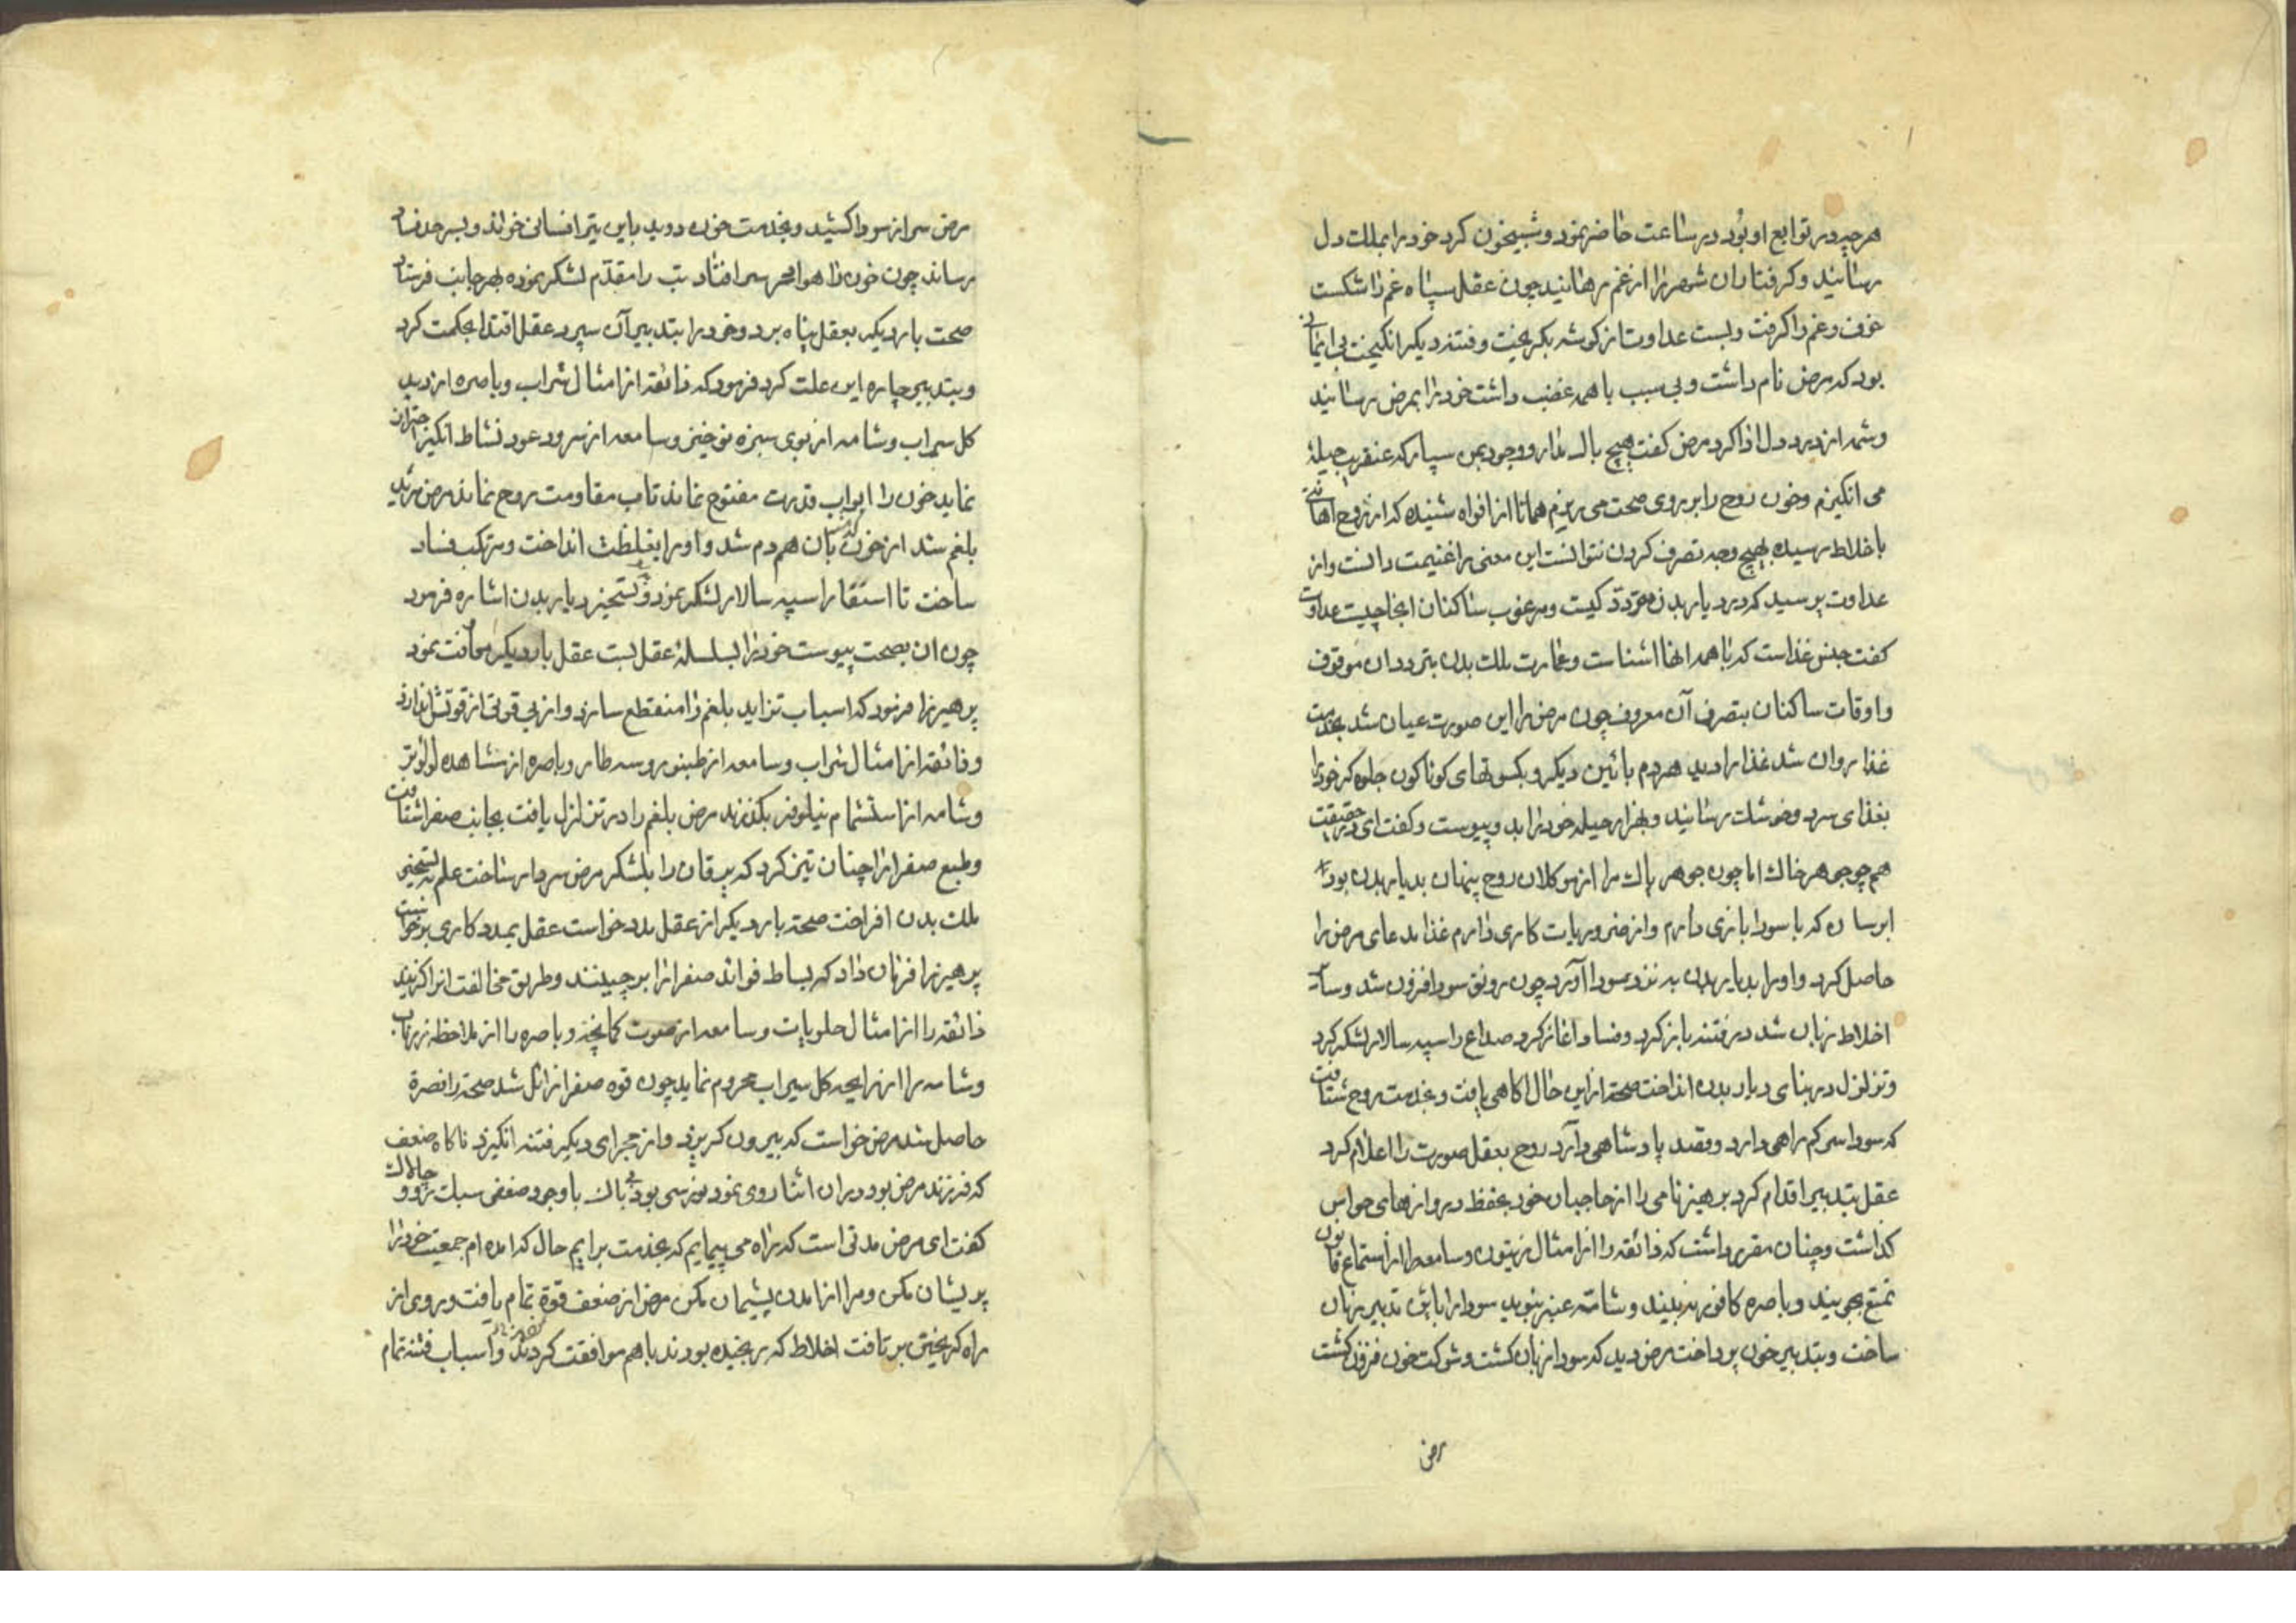 هرچه در توابع او بود در ساعت حاضر نمود و شبیخون کرد خود را بملک دل
رسانید و گرفتاران شهر را از غم رهانید چون عقل سپاه غم را شکست
خوف و غم را گرفت و بست عداوت از گوشه بگریخت و فتنه دیگر انگیخت
بود که مرض نام داشت و بی سبب با همه غضب داشت خود را بمرض رسانید
و شمه از درد دل ادا کرد مرض گفت هیچ باک مدار و وجود بمن سپار که عنقریب حیلهٔ
می انگیزم و خون روح را بر روی صحت می ریزم همانا از افواه شنیده که از روح اهانتی
باخلاط رسیده بهیچ وجه تصرف کردن نتوانست این معنی را غنیمت دانست و از
عداوت پرسید که در دیار بدن متردد کیست و مرغوب ساکنان انجا چیست عداوت
گفت جنس غذاست که با همه انها اشناست و عمارت ملک بدن بتردد ان موقوف
و اوقات ساکنان بتصرف آن معروف چون مرض را این صورت عیان شد بخدمت
غذا روان شد غذا را دید هر دم بائین دیگر و بکسوتهای کوناکون جلوه کر خود را
بغذای سرد و خشک رسانید و بهزار حیله خود را بدو پیوست و گفت ای در حقیقت
هم چو جوهر خاک اما چون جوهر پاک مرا از موکلان روح پنهان بدیار بدن بود
ابرسان که با سودا بازی دارم و از ضروریات کاری دارم غذا مدعای مرض را
حاصل کرد و او را بدیار بدن به نزد سودا آورد چون رونق سودا افزون شد و سایر
اخلاط زبان شد در فتنه باز کرد و فساد اغاز کرد صداع را سپه سالار لشکر کرد
و تزلزل در بنای دیار بدن انداخت صحة از این حال اکاهی یافت و بخدمت روح شتافت
که سودا سرکم راهی دارد و قصد پادشاهی دارد روح بعقل صورت را اعلام کرد
عقل بتدبیر اقدام کرد پرهیز نامی را از حاجبان خود بحفظ دروازهای حواس
کذاشت و چنان مقرر داشت که ذائقه را از امثال زیتون و سامعه را از استماع قانون
تمتع نجوید و باصره کافور نه بیند و شامه عنبر نبوید سودا را باین تدبیر زبان
ساخت و بتدبیر خون پرداخت مرض دید که سودا زبان کشت و شوکت خون فزون کشت
مرض
مرض سر از سودا کشید و بخدمت خون دوید باین تیرا فسانی خواند و بسرحد فساد
رساند چون خون را هوا بحر سر افتاد تب را مقدم لشکر نموده بهر جانب فرستاد
صحت بار دیگر بعقل پناه برد و خود را بتدبیر آن سپرد عقل اقتدا بحکمت کرد
و بتدبیر چاره این علت کرد فرمود که ذائقه از امثال شراب و باصره از دید
کل سیراب و شامه از بوی سبزه نوخیز و سامعه از سرود عود نشاط انگیز احتراز
نماید خون را ابواب قدرت مفتوح نماند تاب مقاومت روح نماند مرض مرید
بلغم شد از خون بان هم دم شد و او را بغلظت انداخت و مرتکب فساد
ساخت تا استسقا را سپه سالار لشکر نمود و بتسخیر دیار بدن اشاره فرمود
چون ان بصحت پیوست خود را بسلسلهٔ عقل بست عقل بار دیگر معاونت نمود
پرهیز را فرمود که اسباب تزاید بلغم را منقطع سازد و از بی قوتی از قوتش اندازد
و ذائقه از امثال شراب و سامعه از طنبور و سه طار و باصره از مشاهده لولو تر
و شامه از استشمام نیلوفر بگذرند مرض بلغم را در تزلزل یافت بجانب صفرا شتافت
و طبع صفرا را چنان تیز کرد که یرقان را بلشکر مرض سردار ساخت علم به تسخیر
ملک بدن افراخت صحة بار دیگر از عقل مدد خواست عقل بمدد کاری برخواست
پرهیز را فرمان داد که بساط فواید صفرا را برچینند و طریق مخالفت انرا گزیند
ذائقه را از امثال حلویات و سامعه از صوت کمانچه و باصره را از ملاحظه زرناب
و شامه را از رایحه کل سیراب محروم نماید چون قوه صفرا زائل شد صحة را نصرة
حاصل شد مرض خواست که بیرون کریزد و از مجرای دیگر فتنه انگیزد ناکاه ضعف
که فرزند مرض بود در ان اثنا روی نمود بی باک با وجود ضعفی سبک رو و چالاک
گفت ای مرض مدتی است که راه می پیمایم که بخدمت برایم حال که امده ام جمعیت خود را
پریشان مکن و مرا از امدن پشیمان مکن مرض از ضعف قوة تمام یافت و روی از
راه کریختن برتافت اخلاط که رنجیده بودند با هم موافقت کردند و اسباب فتنه تمام